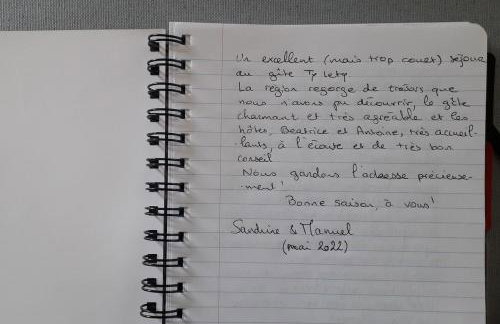 Un excellent (mais trop court) séjour
au gîte Ty Lety
La région regorge de trésors que
nous n'avons pu découvrir, le gîte
charmant et très agréable et les
hôtes, Béatrice et Antoine, très accueil-
lants, à l'écoute et de très bon
conseil
Nous gardons l'adresse précieuse-
ment!
Bonne saison, à vous!
Sandrine & Manuel
(mai 2022)